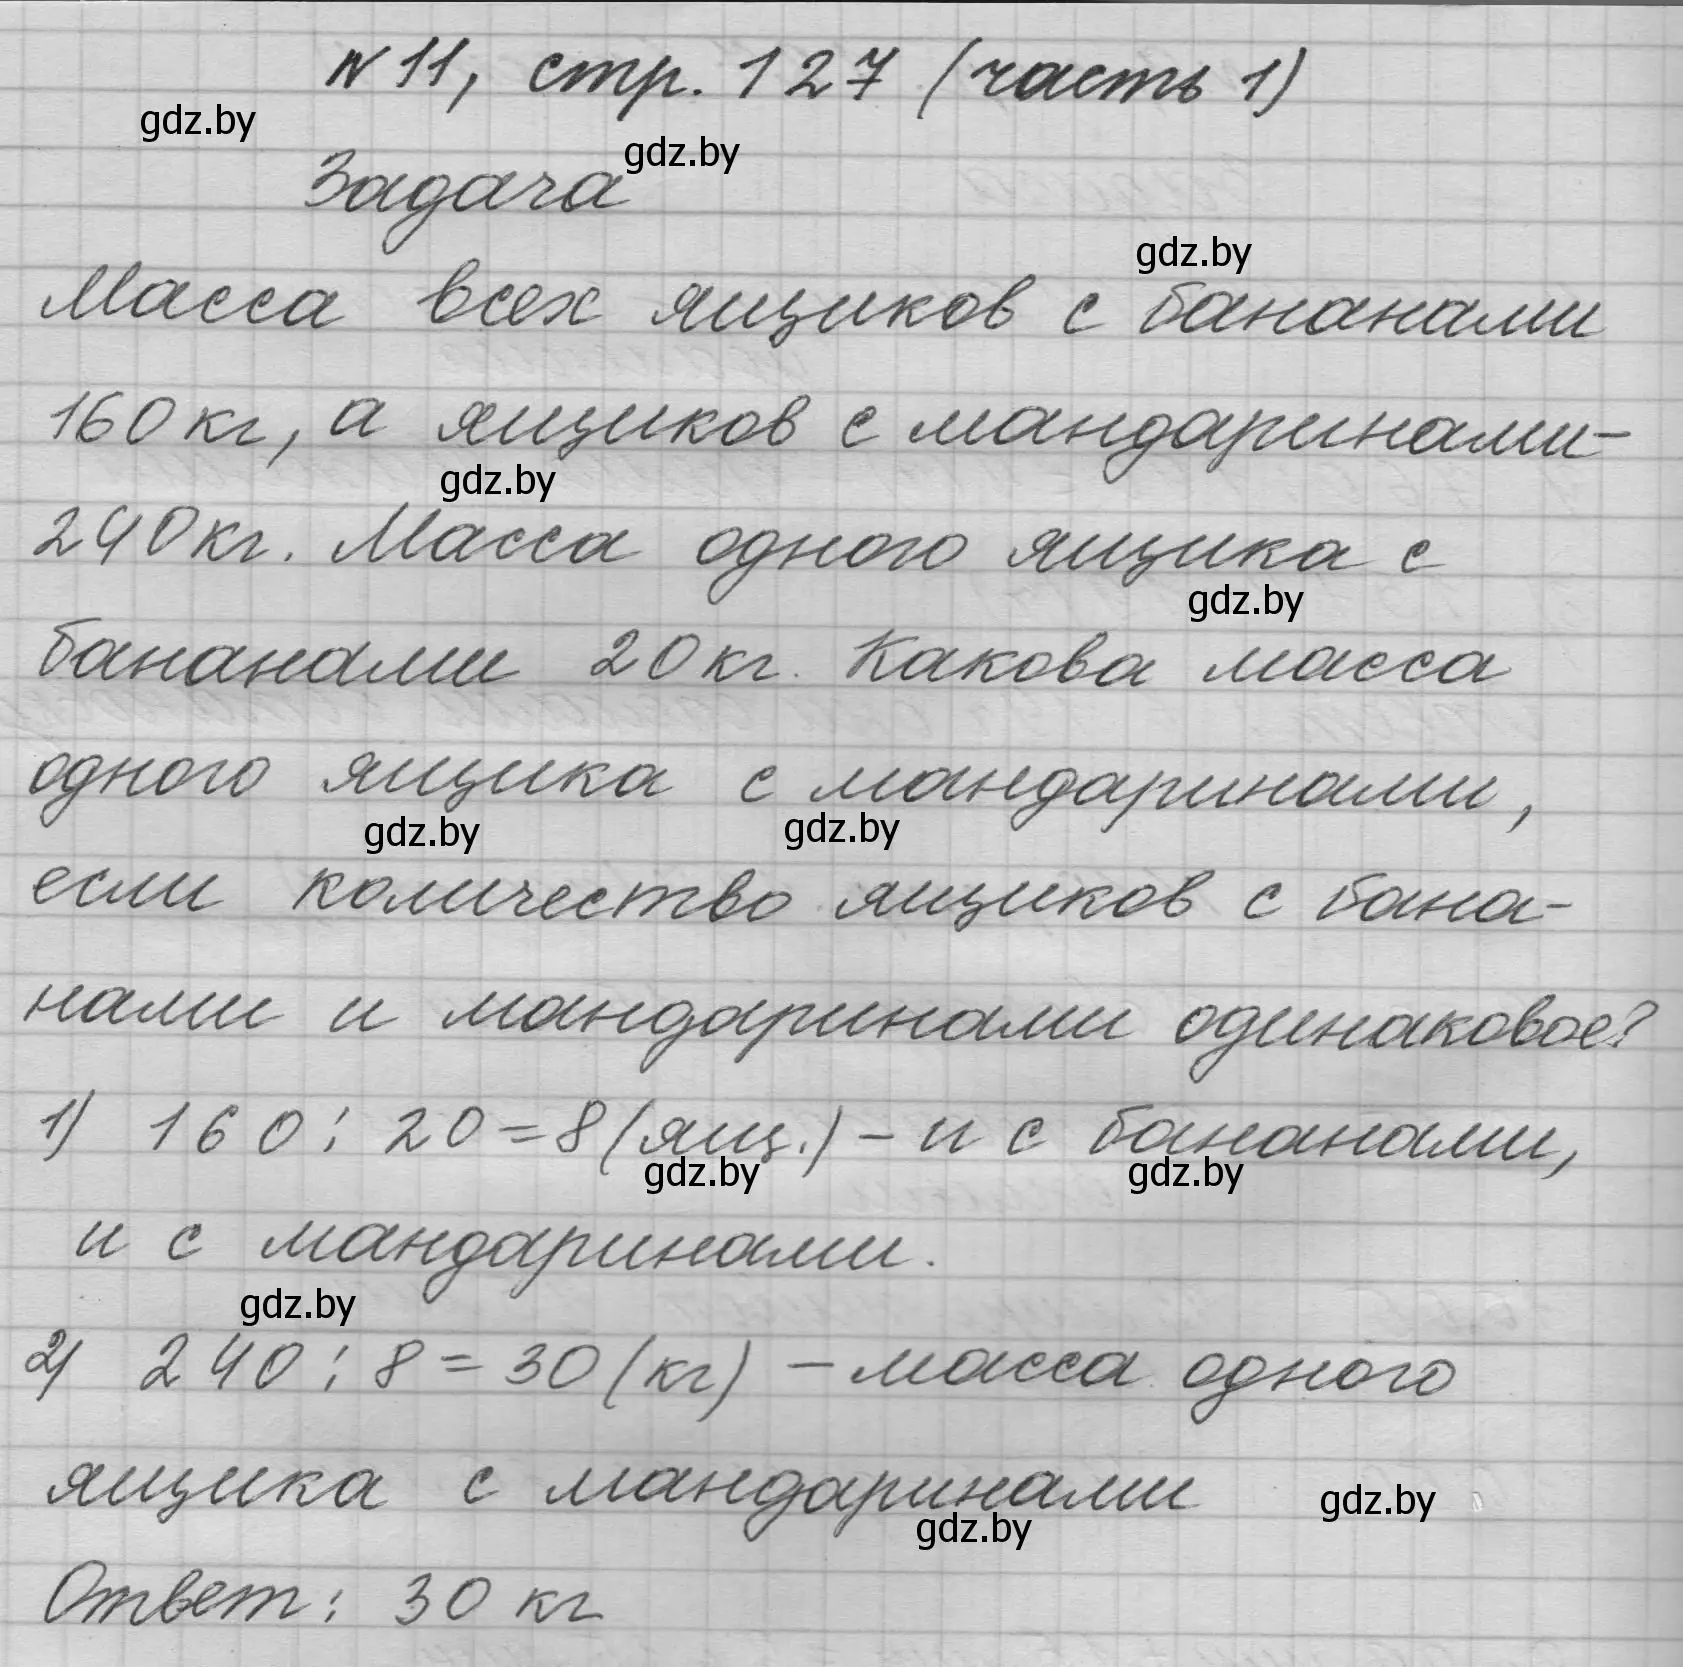 № 11, стр. 127 (часть 1)
gdz.by
gdz.by
Задача
gdz.by
Масса всех ящиков с бананами
160 кг, а ящиков с мандаринами-
gdz.by
240 кг. Масса одного ящика с
gdz.by
бананами 20 кг. Какова масса
одного ящика с мандаринами,
gdz.by gdz.by
если количество ящиков с бана-
нами и мандаринами одинаковое?
1) 160 : 20 = 8 (ящ.) - и с бананами,
gdz.by gdz.by
и с мандаринами.
gdz.by
2) 240 : 8 = 30 (кг) - масса одного
ящика с мандаринами
gdz.by
gdz.by
Ответ: 30 кг